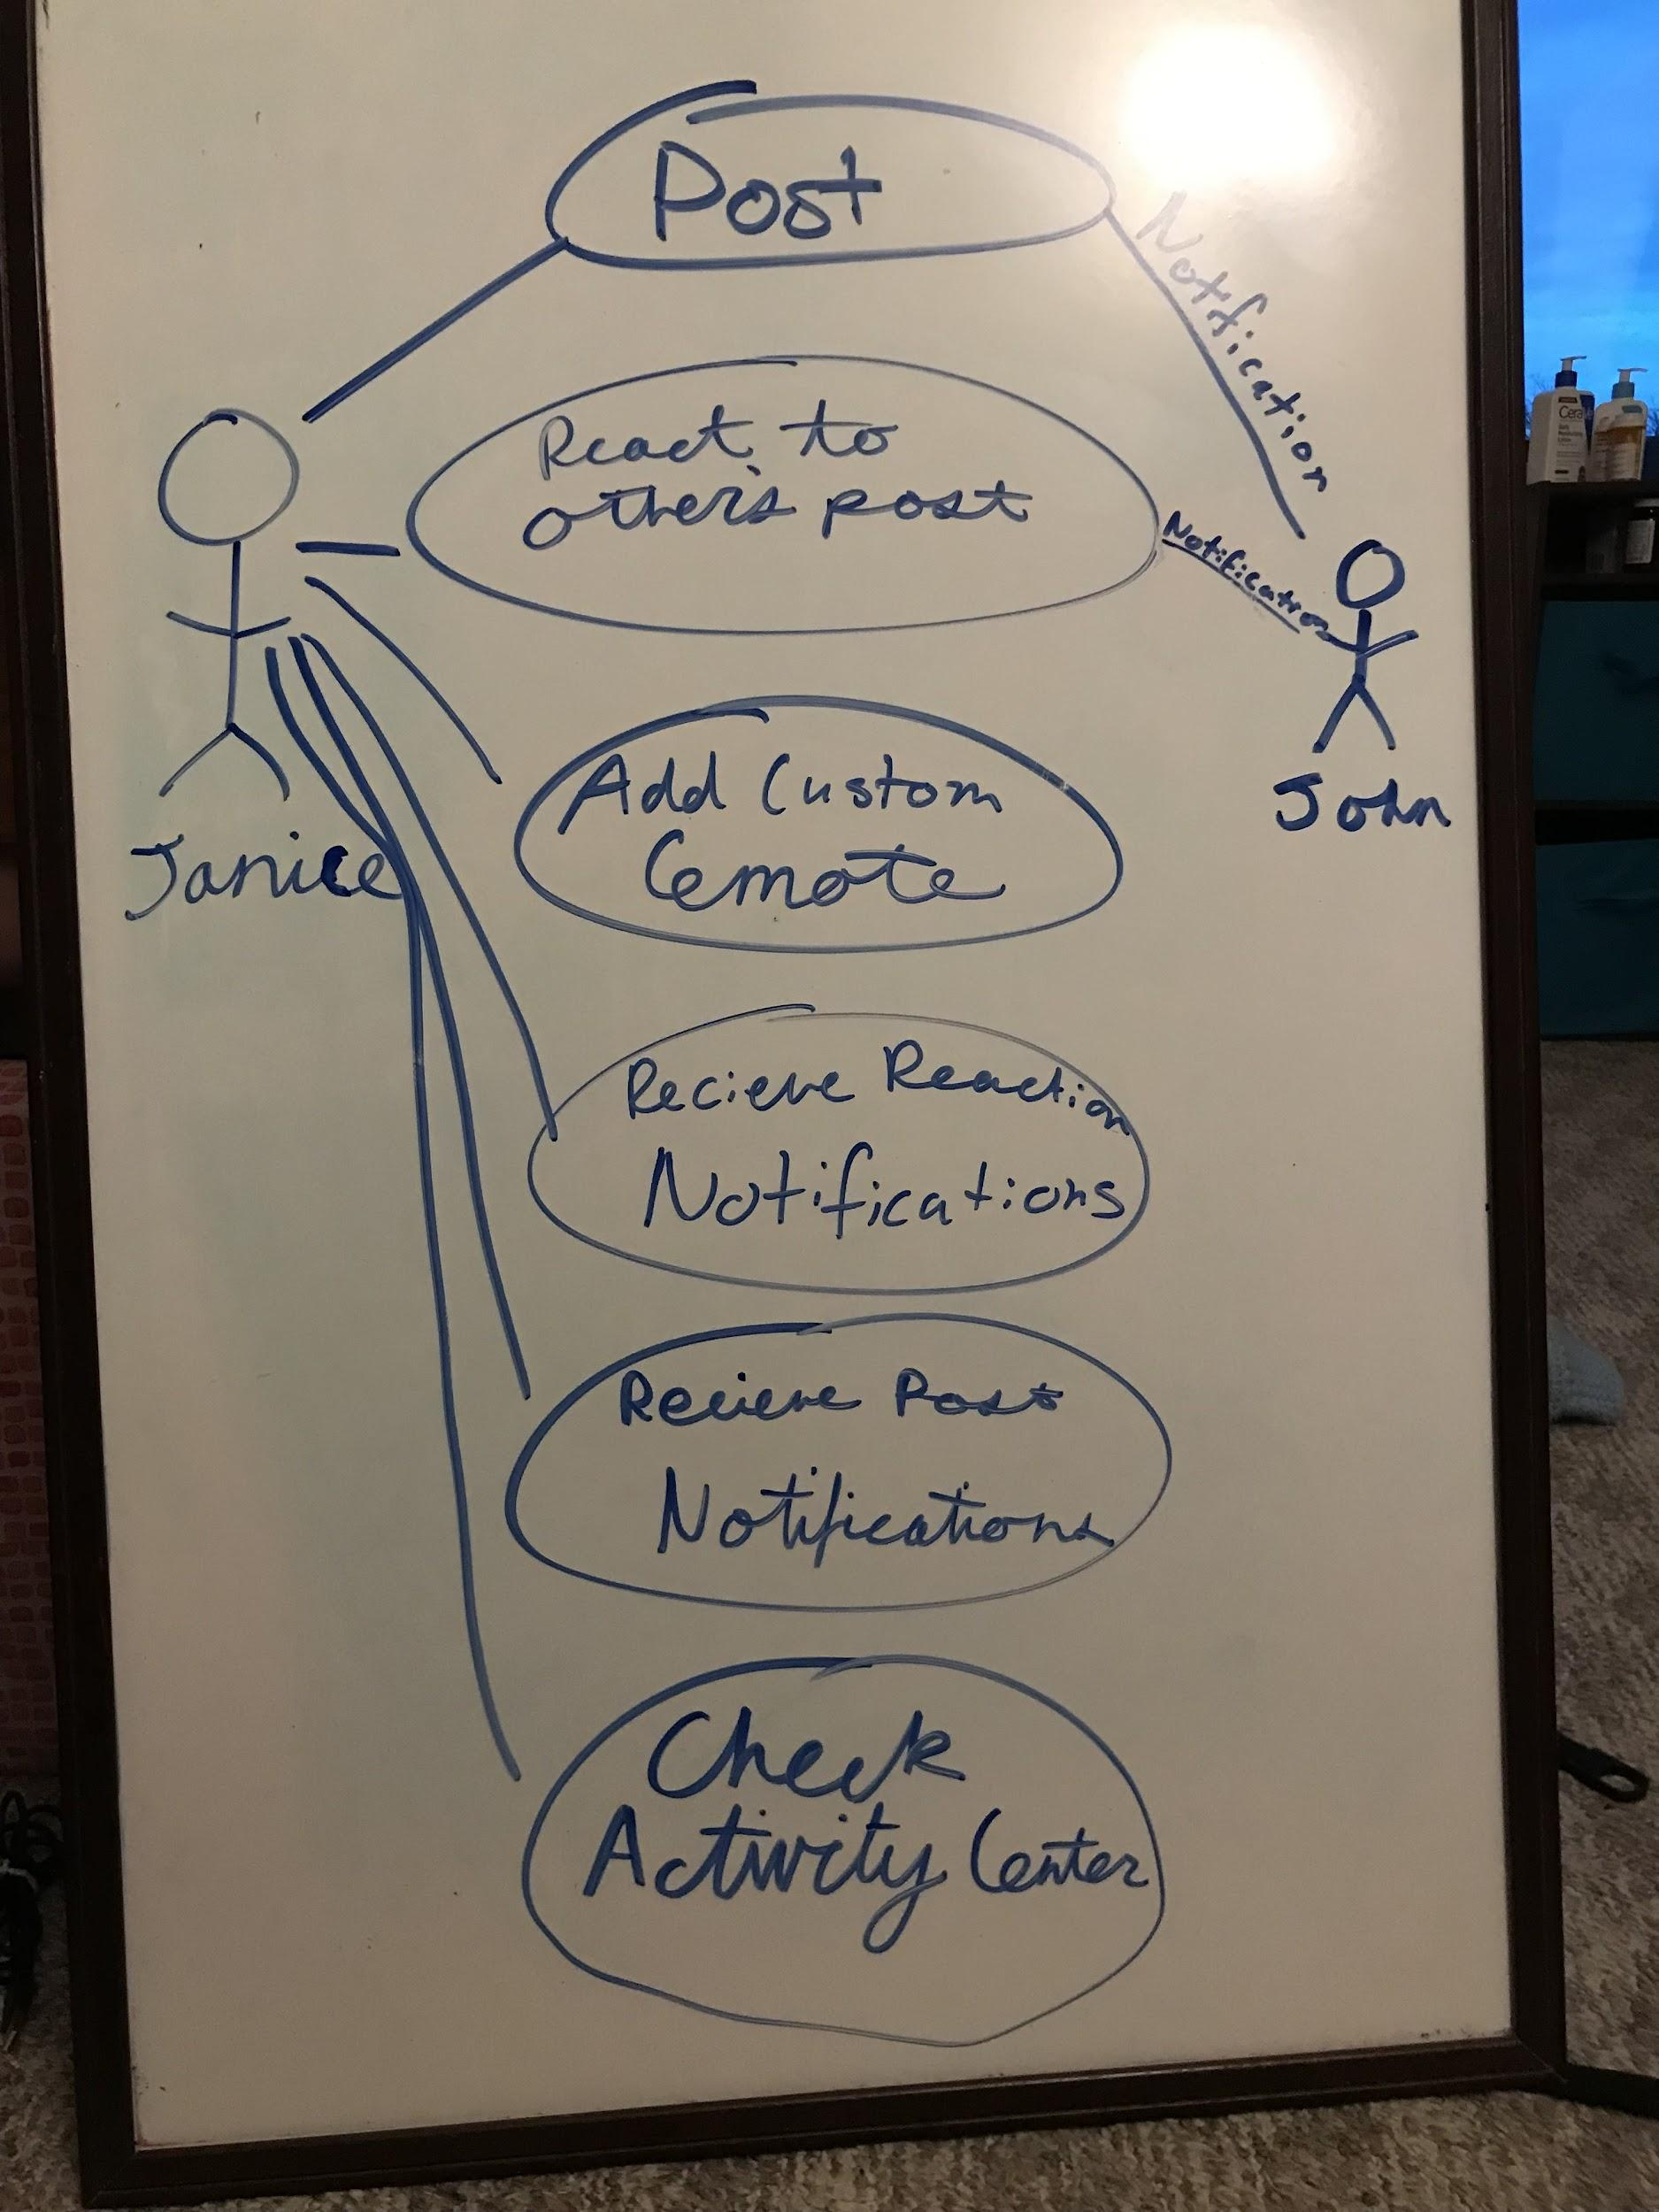 Post
Notification
React to
other's post
Notification
Janice
John
Add Custom
Emote
Recieve Reaction
Notifications
Recieve Post
Notifications
Check
Activity Center